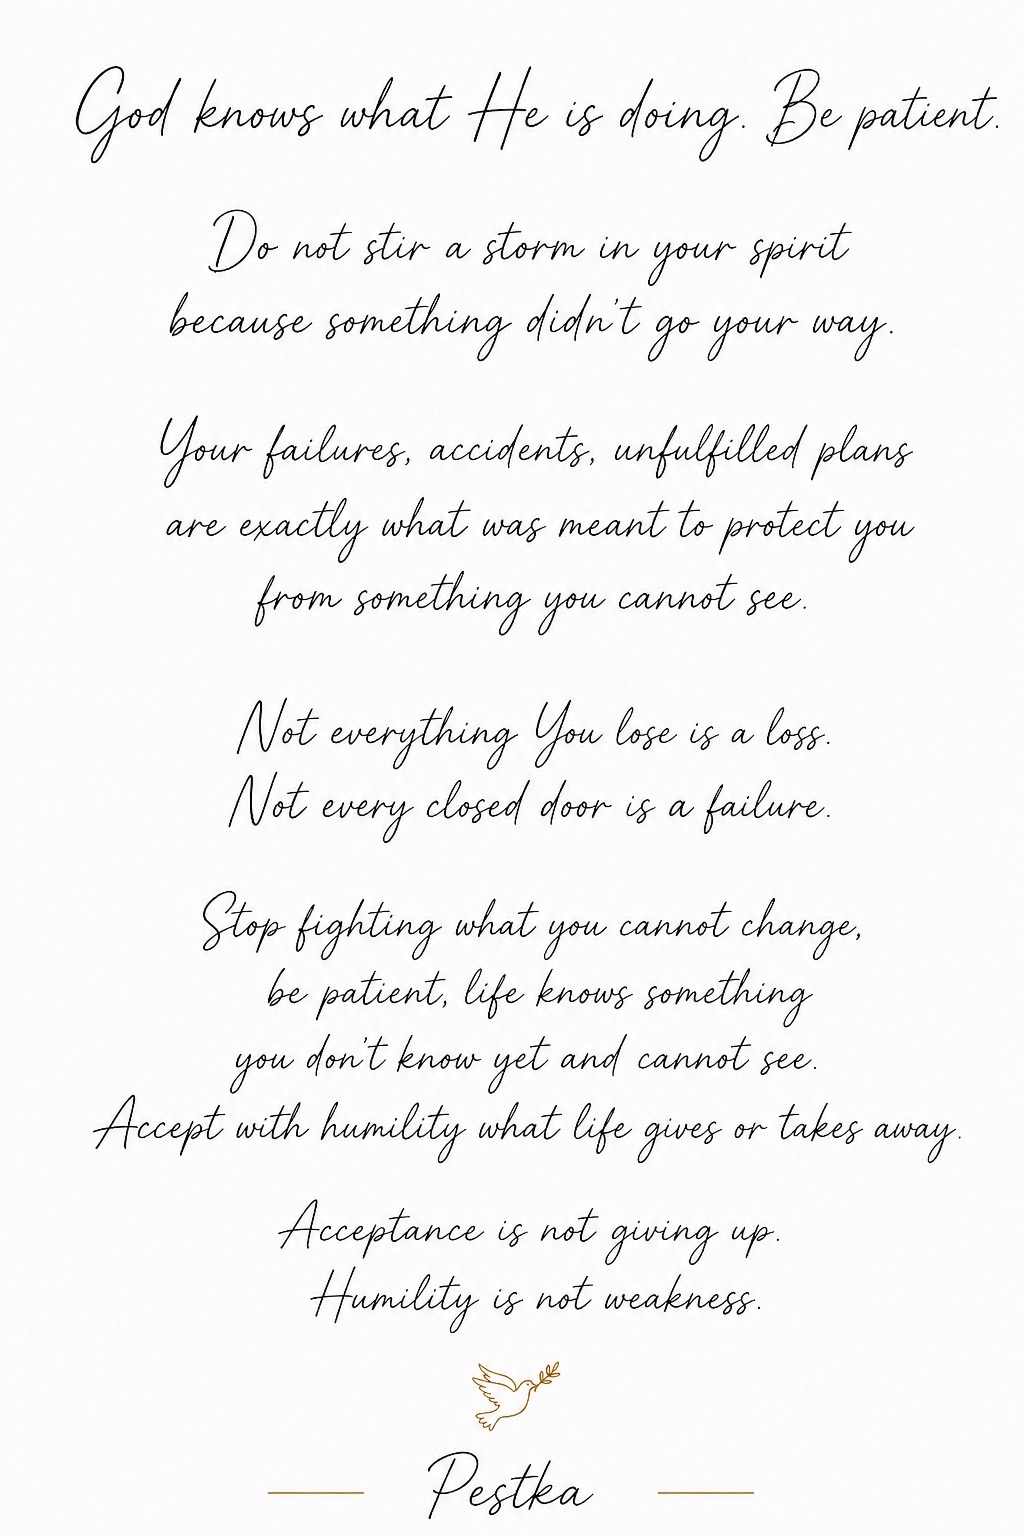 God knows what He is doing. Be patient.
Do not stir a storm in your spirit
because something didn't go your way.
Your failures, accidents, unfulfilled plans
are exactly what was meant to protect you
from something you cannot see.
Not everything You lose is a loss.
Not every closed door is a failure.
Stop fighting what you cannot change,
be patient, life knows something
you don't know yet and cannot see.
Accept with humility what life gives or takes away.
Acceptance is not giving up.
Humility is not weakness.
Pestka